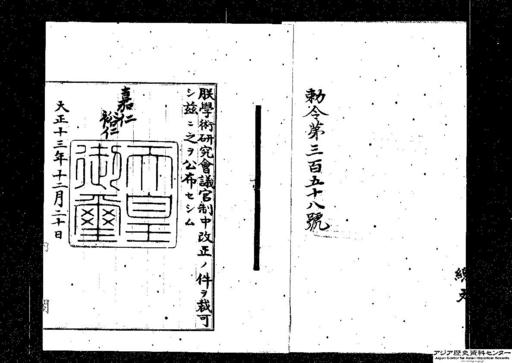 勅令第三百五十八號
朕學術研究會議官制中改正ノ件ヲ裁可
シ茲ニ之ヲ公布セシム
嘉仁
裕仁
天皇
御璽
大正十三年十二月二十日
内閣
アジア歴史資料センター
Japan Center for Asian Historical Records